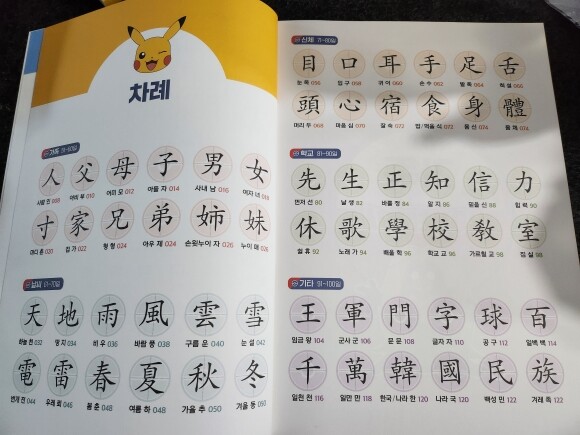 차례
가족
人 父 母 子 男 女
사람 인 008 아비 부 010 어미 모 012 아들 자 014 사내 남 016 여자 녀 018
寸 家 兄 弟 姉 妹
마디 촌 020 집 가 022 형 형 024 아우 제 024 손윗누이 자 026 누이 매 026
날씨 61~70일
天 地 雨 風 雲 雪
하늘 천 032 땅 지 034 비 우 036 바람 풍 038 구름 운 040 눈 설 042
電 雷 春 夏 秋 冬
번개 전 044 우레 뢰 046 봄 춘 048 여름 하 048 가을 추 050 겨울 동 050
신체 71~80일
目 口 耳 手 足 舌
눈 목 056 입 구 058 귀 이 060 손 수 062 발 족 064 혀 설 066
頭 心 宿 食 身 體
머리 두 068 마음 심 070 잘 숙 072 밥/먹을 식 072 몸 신 074 몸 체 074
학교 81~90일
先 生 正 知 信 力
먼저 선 80 날 생 82 바를 정 84 알 지 86 믿을 신 88 힘 력 90
休 歌 學 校 敎 室
쉴 휴 92 노래 가 94 배울 학 96 학교 교 96 가르칠 교 98 집 실 98
기타 91~100일
王 軍 門 字 球 百
임금 왕 104 군사 군 106 문 문 108 글자 자 110 공 구 112 일백 백 114
千 萬 韓 國 民 族
일천 천 116 일만 만 118 한국/나라 한 120 나라 국 120 백성 민 122 겨레 족 122